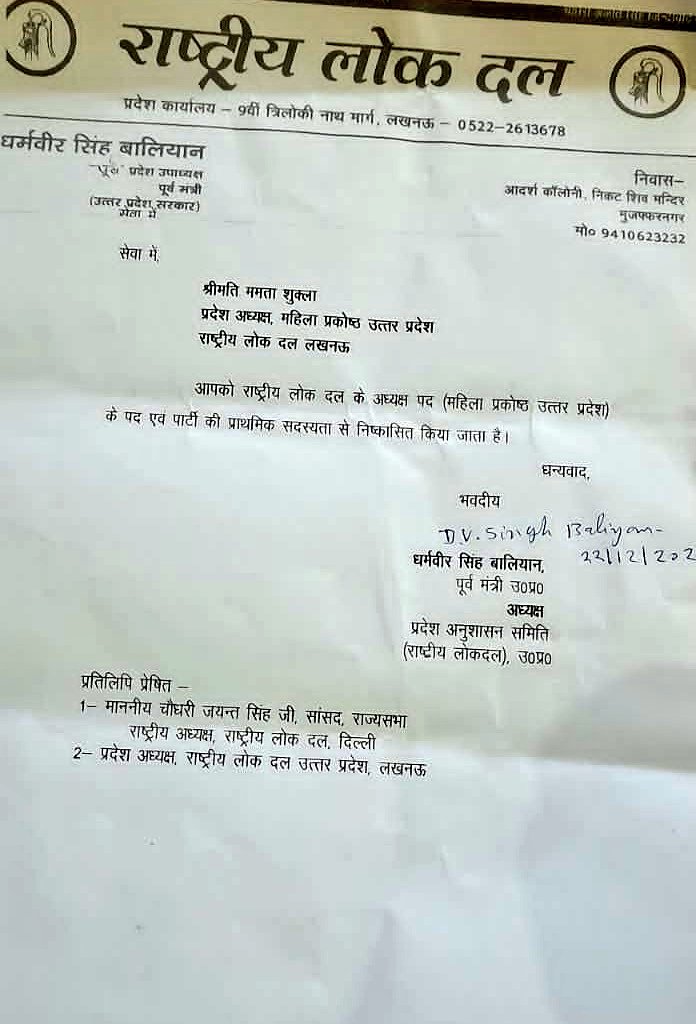 राष्ट्रीय लोक दल
प्रदेश कार्यालय – 9वीं त्रिलोकी नाथ मार्ग, लखनऊ – 0522-2613678
धर्मवीर सिंह बालियान
प्रदेश उपाध्यक्ष
पूर्व मंत्री
(उत्तर प्रदेश सरकार)
सेवा में
निवास–
आदर्श कॉलोनी, निकट शिव मन्दिर
मुजफ्फरनगर
मो० 9410623232
सेवा में,
श्रीमति ममता शुक्ला
प्रदेश अध्यक्ष, महिला प्रकोष्ठ उत्तर प्रदेश
राष्ट्रीय लोक दल लखनऊ
आपको राष्ट्रीय लोक दल के अध्यक्ष पद (महिला प्रकोष्ठ उत्तर प्रदेश)
के पद एवं पार्टी की प्राथमिक सदस्यता से निष्कासित किया जाता है।
धन्यवाद,
भवदीय
D.V. Singh Baliyan
22/12/202
धर्मवीर सिंह बालियान,
पूर्व मंत्री उ०प्र०
अध्यक्ष
प्रदेश अनुशासन समिति
(राष्टीय लोकदल), उ०प्र०
प्रतिलिपि प्रेषित –
1– माननीय चौधरी जयन्त सिंह जी, सांसद, राज्यसभा
राष्ट्रीय अध्यक्ष, राष्ट्रीय लोक दल, दिल्ली
2– प्रदेश अध्यक्ष, राष्ट्रीय लोक दल उत्तर प्रदेश, लखनऊ